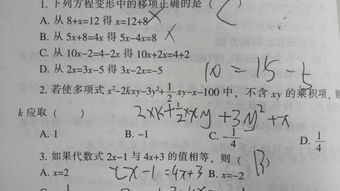 1. 下列方程变形中的移项正确的是（
A. 从 8+x=12 得 x=12+8
B. 从 5x+8=4x 得 5x-4x=8
C. 从 10x-2=4-2x 得 10x+2x=4+2
D. 从 2x=3x-5 得 3x-2x=-5
10=15-5
2. 若使多项式 x²-2kxy-3y²+½xy-x-100 中，不含 xy 的乘积项，
k 应取（ ）
A. 1 B. -1 C. -1/4 D. 1/4
3. 如果代数式 2x-1 与 4x+3 的值相等，则（ B ）
A. x=2 B. x=-2
2x-1=4x+3